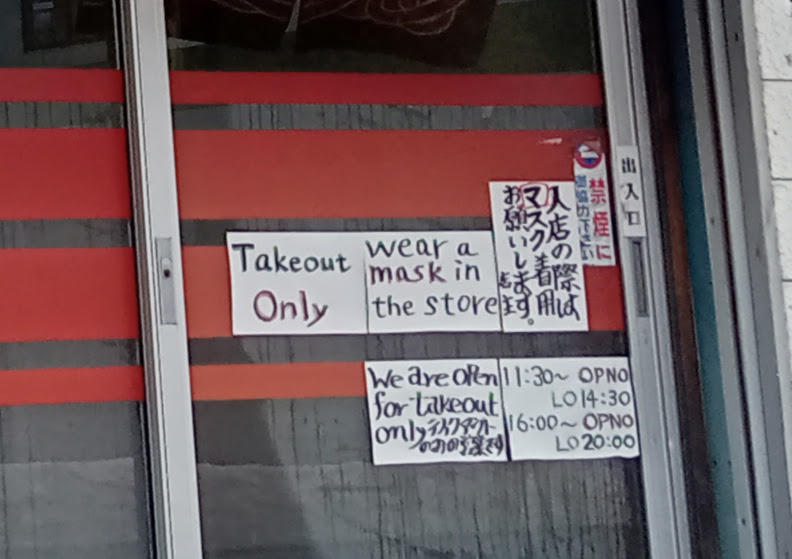 Takeout
Only
wear a
mask in
the store
入店の際は
マスク着用
お願いします。
店主
禁煙に
御協力下さい
出入口
We are OPen
for takeout
only テイクアウト
のみの営業です
11:30~ OPNO
LO 14:30
16:00~ OPNO
LO 20:00